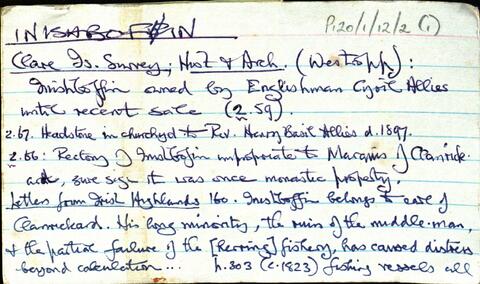 INISHBOFFIN P120/1/12/2 (1)
Clare Is. Survey, Hist & Arch. (Westropp):
Inishboffin owned by Englishman Cyril Allies
until recent sale (2.59).
2.67. Headstone in churchyd to Rev. Henry Basil Allies d. 1897.
2.66: Rectory of Inishbofin impropriate to Marquis of Clanrick-
ard, sure sign it was once monastic property.
Letters from Irish Highlands 160. Inishboffin belongs to earl of
Clanrickard. His long minority, the ruin of the middle-man,
& the partial failure of the [herring] fishery, has caused distress
beyond calculation... p. 303 (c. 1823) fishing vessels all